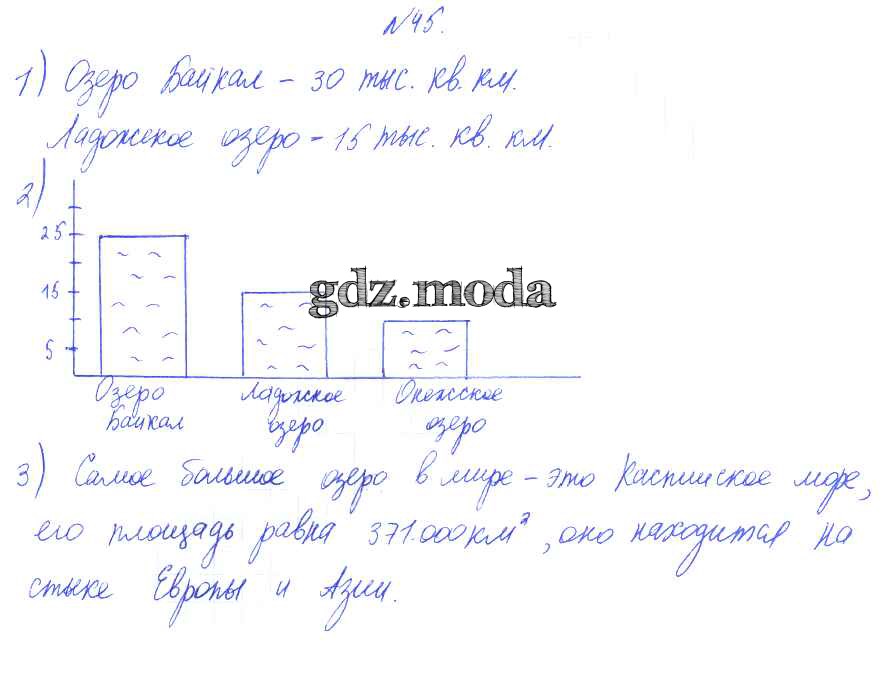 №45.
1) Озеро Байкал – 30 тыс. кв. км.
Ладожское озеро – 15 тыс. кв. км.
2)
25
15
5
gdz.moda
Озеро Байкал
Ладожское озеро
Онежское озеро
3) Самое большое озеро в мире – это Каспийское море,
его площадь равна 371.000 км², оно находится на
стыке Европы и Азии.